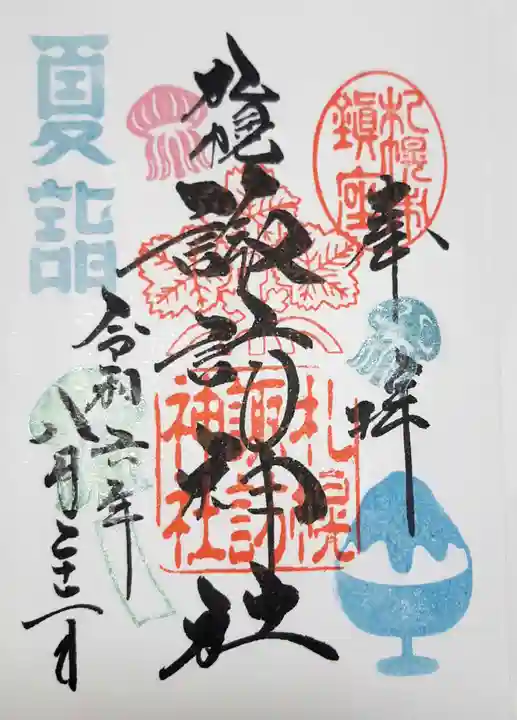 奉拝
札幌市
鎮座
札幌
諏訪神社
札幌
諏訪
神社
夏詣
令和六年
八月二十一日